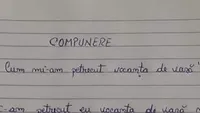 COMPUNERE
Cum mi-am petrecut vacanța de vară"
-am petrecut eu vacanța de vară